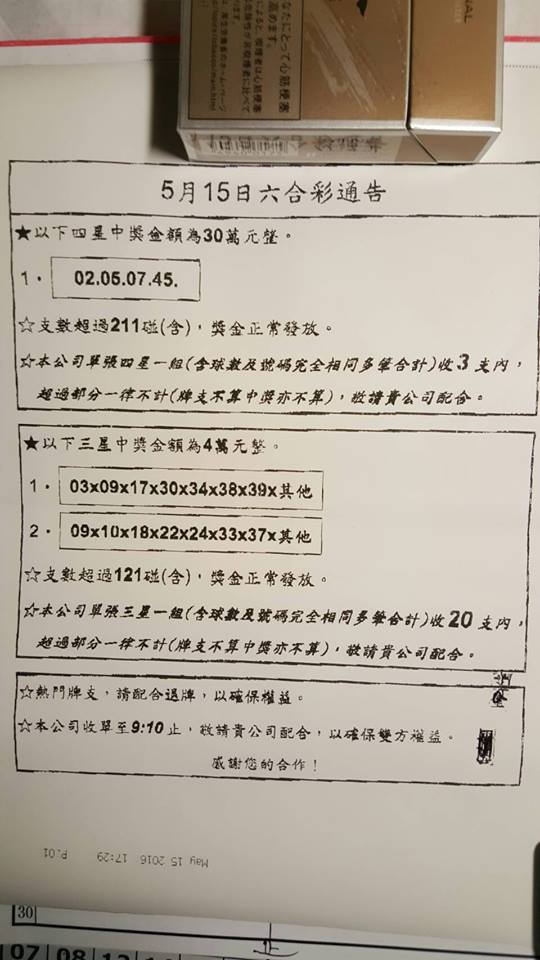 NAL
なたにとって心筋梗塞
高めます。
によると、喫煙者は心筋梗塞
険性が非喫煙者に比べて
5月15日六合彩通告
★以下四星中獎金額為30萬元整。
1. 02.05.07.45.
☆支數超過211碰(含)，獎金正常發放。
☆本公司單張四星一組(含球數及號碼完全相同多筆合計)收3支內，
超過部分一律不計(牌支不算中獎亦不算)，敬請貴公司配合。
★以下三星中獎金額為4萬元整。
1. 03x09x17x30x34x38x39x其他
2. 09x10x18x22x24x33x37x其他
☆支數超過121碰(含)，獎金正常發放。
☆本公司單張三星一組(含球數及號碼完全相同多筆合計)收20支內，
超過部分一律不計(牌支不算中獎亦不算)，敬請貴公司配合。
☆熱門牌支，請配合退牌，以確保權益。
☆本公司收單至9:10止，敬請貴公司配合，以確保雙方權益。
感謝您的合作！
May 15 2016 17:29 P.01
30
07 08